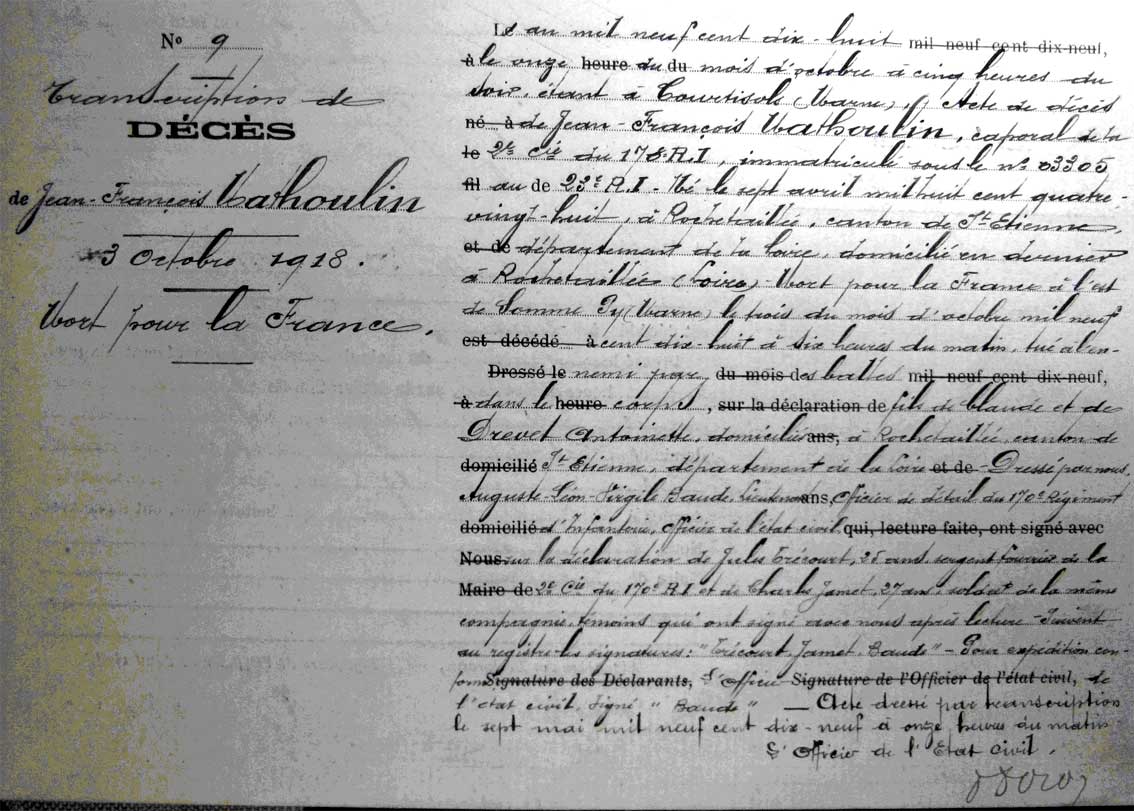 N° 9
Transcription de
DÉCÈS
de Jean-François Mathoulin
3 Octobre 1918.
Mort pour la France.
L's an mil neuf cent dix-huit mil neuf cent dix-neuf,
à le onze heure du du mois d'octobre à cinq heures du
soir, étant à Courtisols (Marne), Acte de décès
né à de Jean-François Mathoulin, caporal de la
le 2e Cie du 170e R.I, immatriculé sous le n° 03305
fil au de 23e R.I. Né le sept avril mil huit cent quatre-
vingt-huit, à Rochetaillée, canton de St Etienne,
et de département de la Loire, domicilié en dernier
à Rochetaillée (Loire) - Mort pour la France à l'est
de Somme Py (Marne) le trois du mois d'octobre mil neuf
est décédé à cent dix-huit à six heures du matin, tué à l'en-
Dressé le nemi par du mois des balles mil neuf cent dix-neuf,
à dans le heure corps, sur la déclaration de fils de Claude et de
Drevet Antoinette, domiciliés ans, à Rochetaillée, canton de
domicilié St Etienne, département de la Loire et de - Dressé par nous,
Auguste-Léon-Virgile Baude, Lieutenant ans, officier de détail du 170e Régiment
domicilié d'Infanterie, officier de l'état civil, qui, lecture faite, ont signé avec
Nous sur la déclaration de Jules Trécourt, 25 ans sergent fourrier de la
Maire de 2e Cie du 170e R.I et de Charles Jamet, 27 ans, soldat de la même
compagnie, témoins qui ont signé avec nous après lecture - Suivent
au registre les signatures: "Trécourt, Jamet, Baude" - Pour expédition con-
forme Signature des Déclarants, L'officier Signature de l'Officier de l'état civil, de
l'état civil, Signé "Baude" — Acte dressé par transcription
le sept mai mil neuf cent dix-neuf à onze heures du matin
L'Officier de l'Etat Civil.